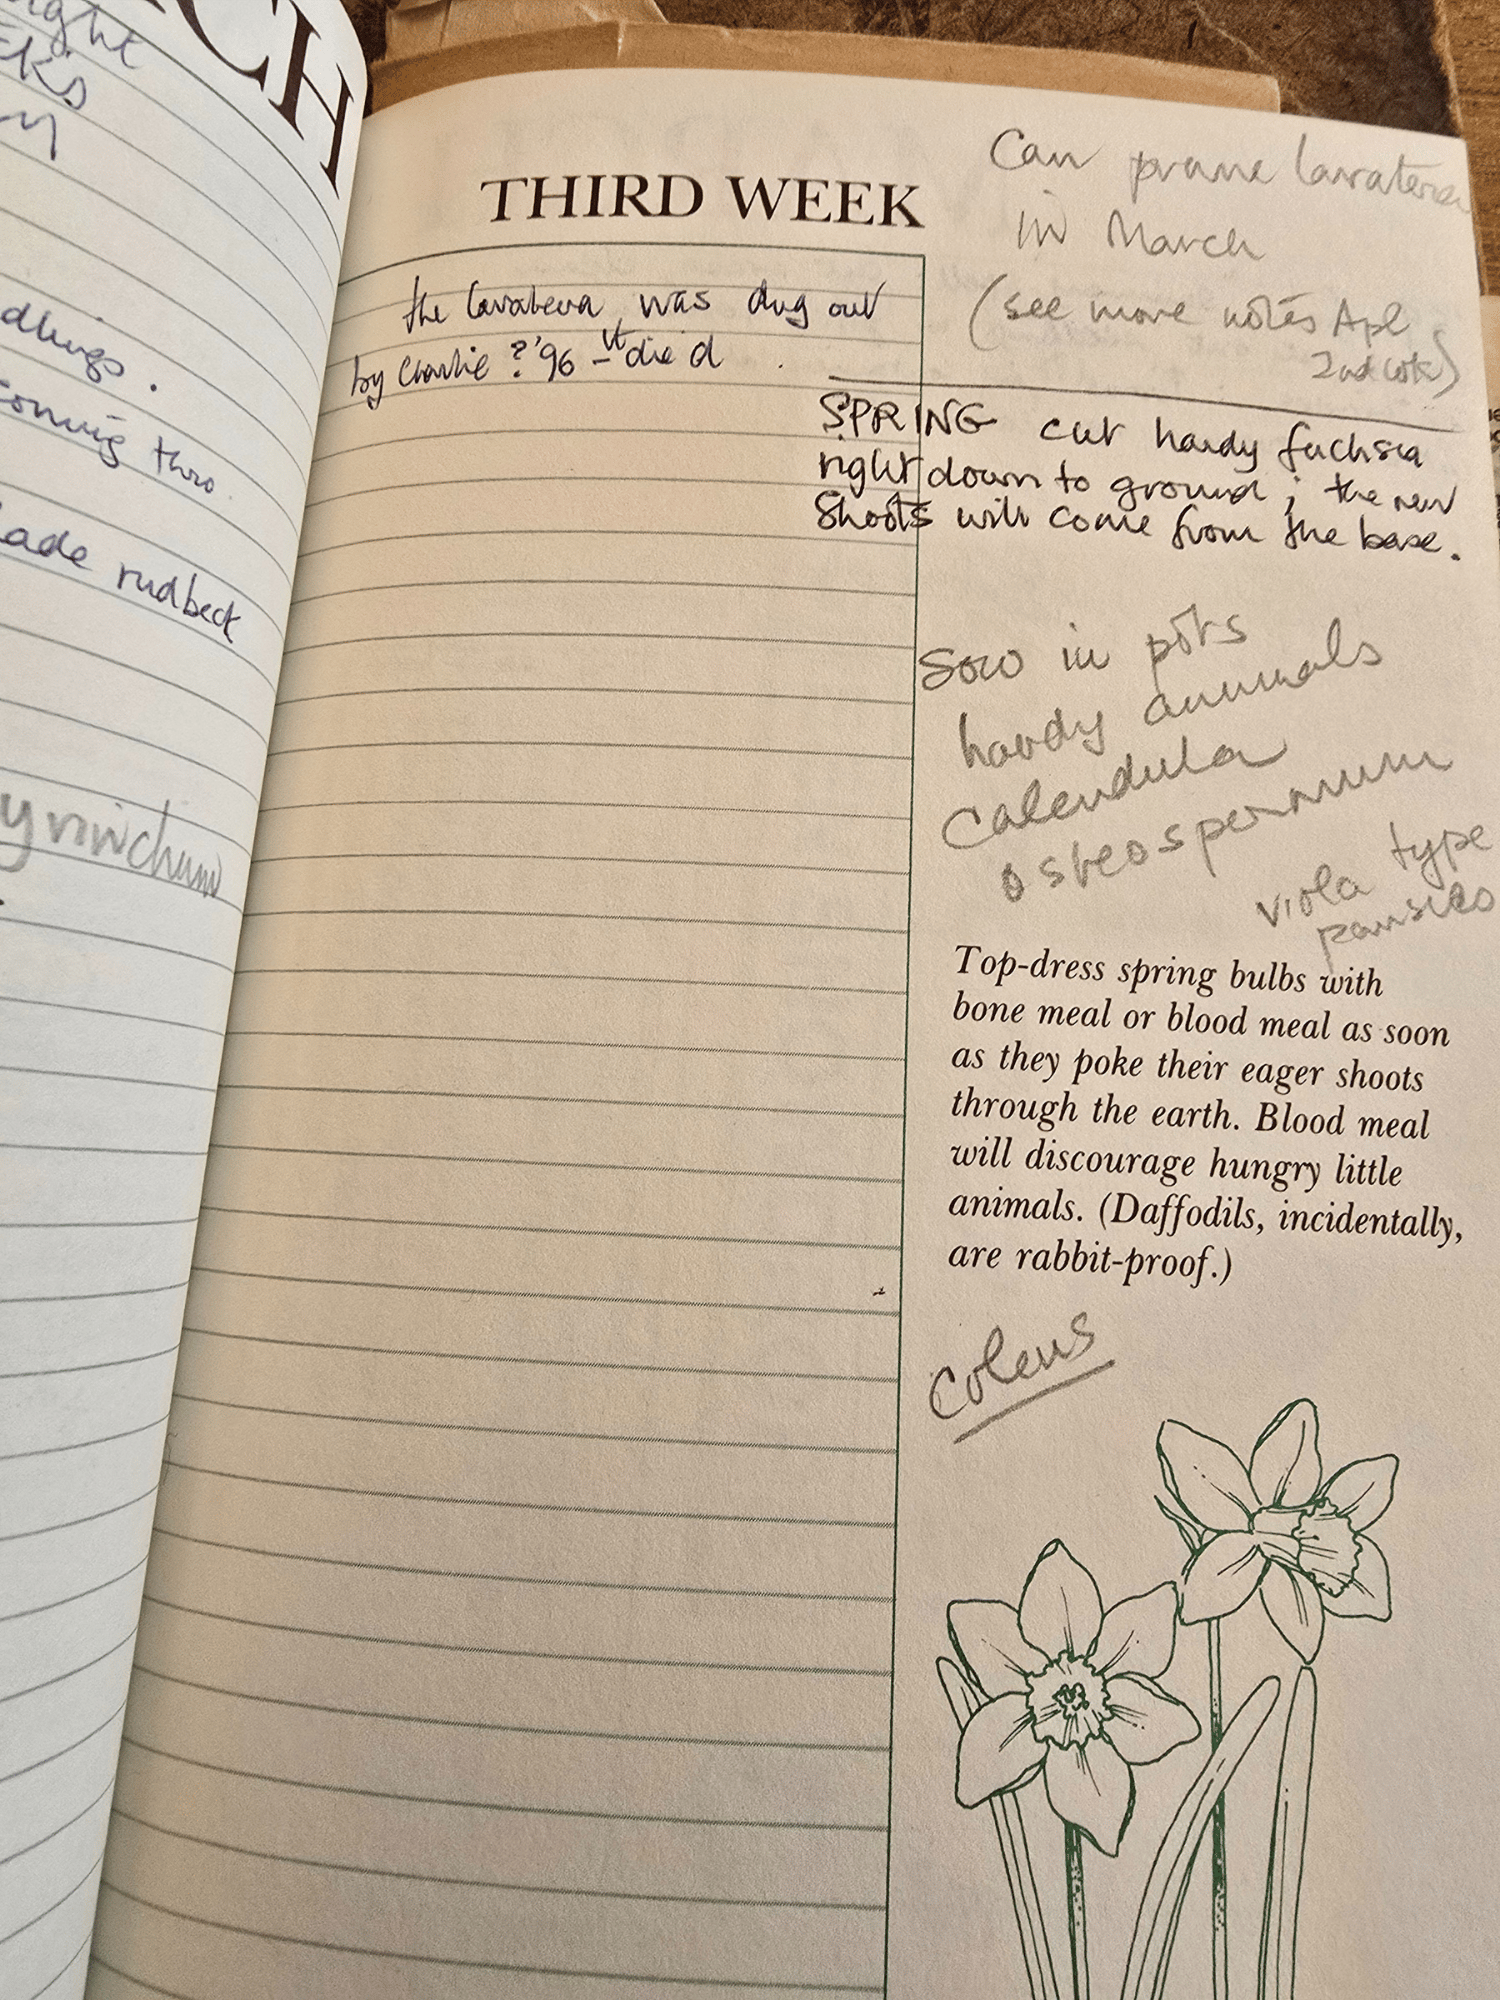 CH
ight
dlings.
coming thro
lade rudbeck
THIRD WEEK
the lavatera was dug out
by Charlie ? '96 - it died.
Can prune lavatera
in March
(see more notes Apl
2nd wk)
SPRING cut hardy fuchsia
right down to ground; the new
shoots will come from the base.
Sow in pots
hardy annuals
Calendula
osteospermum
viola type
pansies
Top-dress spring bulbs with
bone meal or blood meal as soon
as they poke their eager shoots
through the earth. Blood meal
will discourage hungry little
animals. (Daffodils, incidentally,
are rabbit-proof.)
Coleus